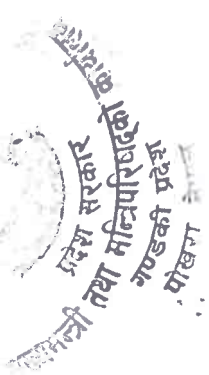 प्रदेश सरकार
मुख्यमन्त्री तथा मन्त्रिपरिषद्को कार्यालय
गण्डकी प्रदेश
पोखरा